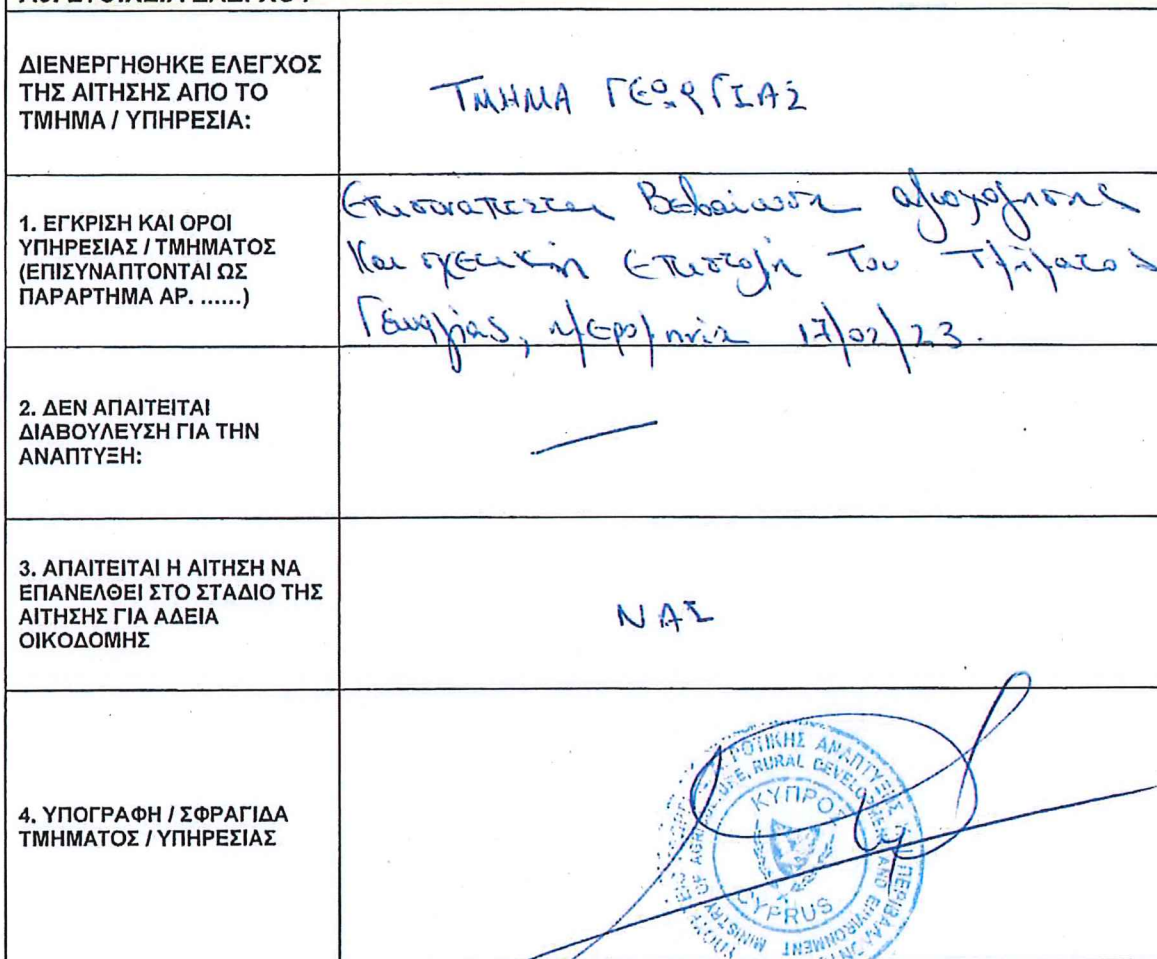 ΔΙΕΝΕΡΓΗΘΗΚΕ ΕΛΕΓΧΟΣ
ΤΗΣ ΑΙΤΗΣΗΣ ΑΠΟ ΤΟ
ΤΜΗΜΑ / ΥΠΗΡΕΣΙΑ:
ΤΜΗΜΑ ΓΕΩΡΓΙΑΣ
1. ΕΓΚΡΙΣΗ ΚΑΙ ΟΡΟΙ
ΥΠΗΡΕΣΙΑΣ / ΤΜΗΜΑΤΟΣ
(ΕΠΙΣΥΝΑΠΤΟΝΤΑΙ ΩΣ
ΠΑΡΑΡΤΗΜΑ ΑΡ. ......)
Επισυνάπτεται Βεβαίωση αξιολόγησης
και σχετική επιστολή του Τμήματος
Γεωργίας, ημερομηνία 17/02/23.
2. ΔΕΝ ΑΠΑΙΤΕΙΤΑΙ
ΔΙΑΒΟΥΛΕΥΣΗ ΓΙΑ ΤΗΝ
ΑΝΑΠΤΥΞΗ:
3. ΑΠΑΙΤΕΙΤΑΙ Η ΑΙΤΗΣΗ ΝΑ
ΕΠΑΝΕΛΘΕΙ ΣΤΟ ΣΤΑΔΙΟ ΤΗΣ
ΑΙΤΗΣΗΣ ΓΙΑ ΑΔΕΙΑ
ΟΙΚΟΔΟΜΗΣ
ΝΑΙ
4. ΥΠΟΓΡΑΦΗ / ΣΦΡΑΓΙΔΑ
ΤΜΗΜΑΤΟΣ / ΥΠΗΡΕΣΙΑΣ
ΑΝΑΠΤΥΞΗΣ
MINISTRY OF AGRICULTURE, RURAL DEVELOPMENT AND ENVIRONMENT
ΚΥΠΡΟΣ
CYPRUS